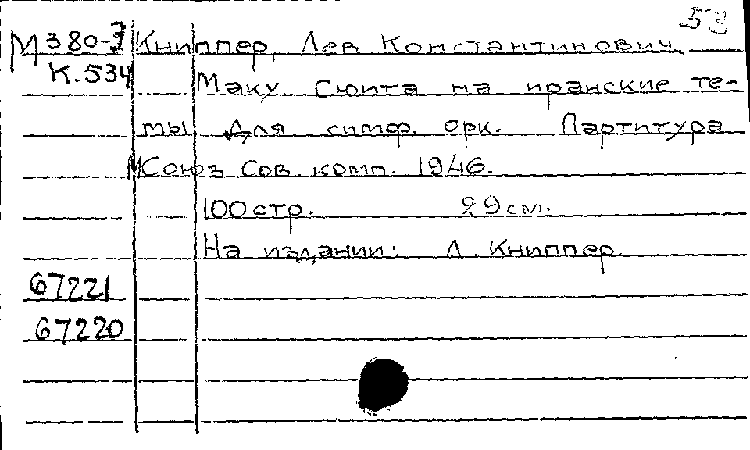 53
М380-3 Книппер, Лев Константинович
К.534 Маку. Сюита на иранские те-
мы для симф. орк. Партитура
М Союз Сов. комп. 1946.
100стр. 29см.
На издании: Л. Книппер.
67221
67220